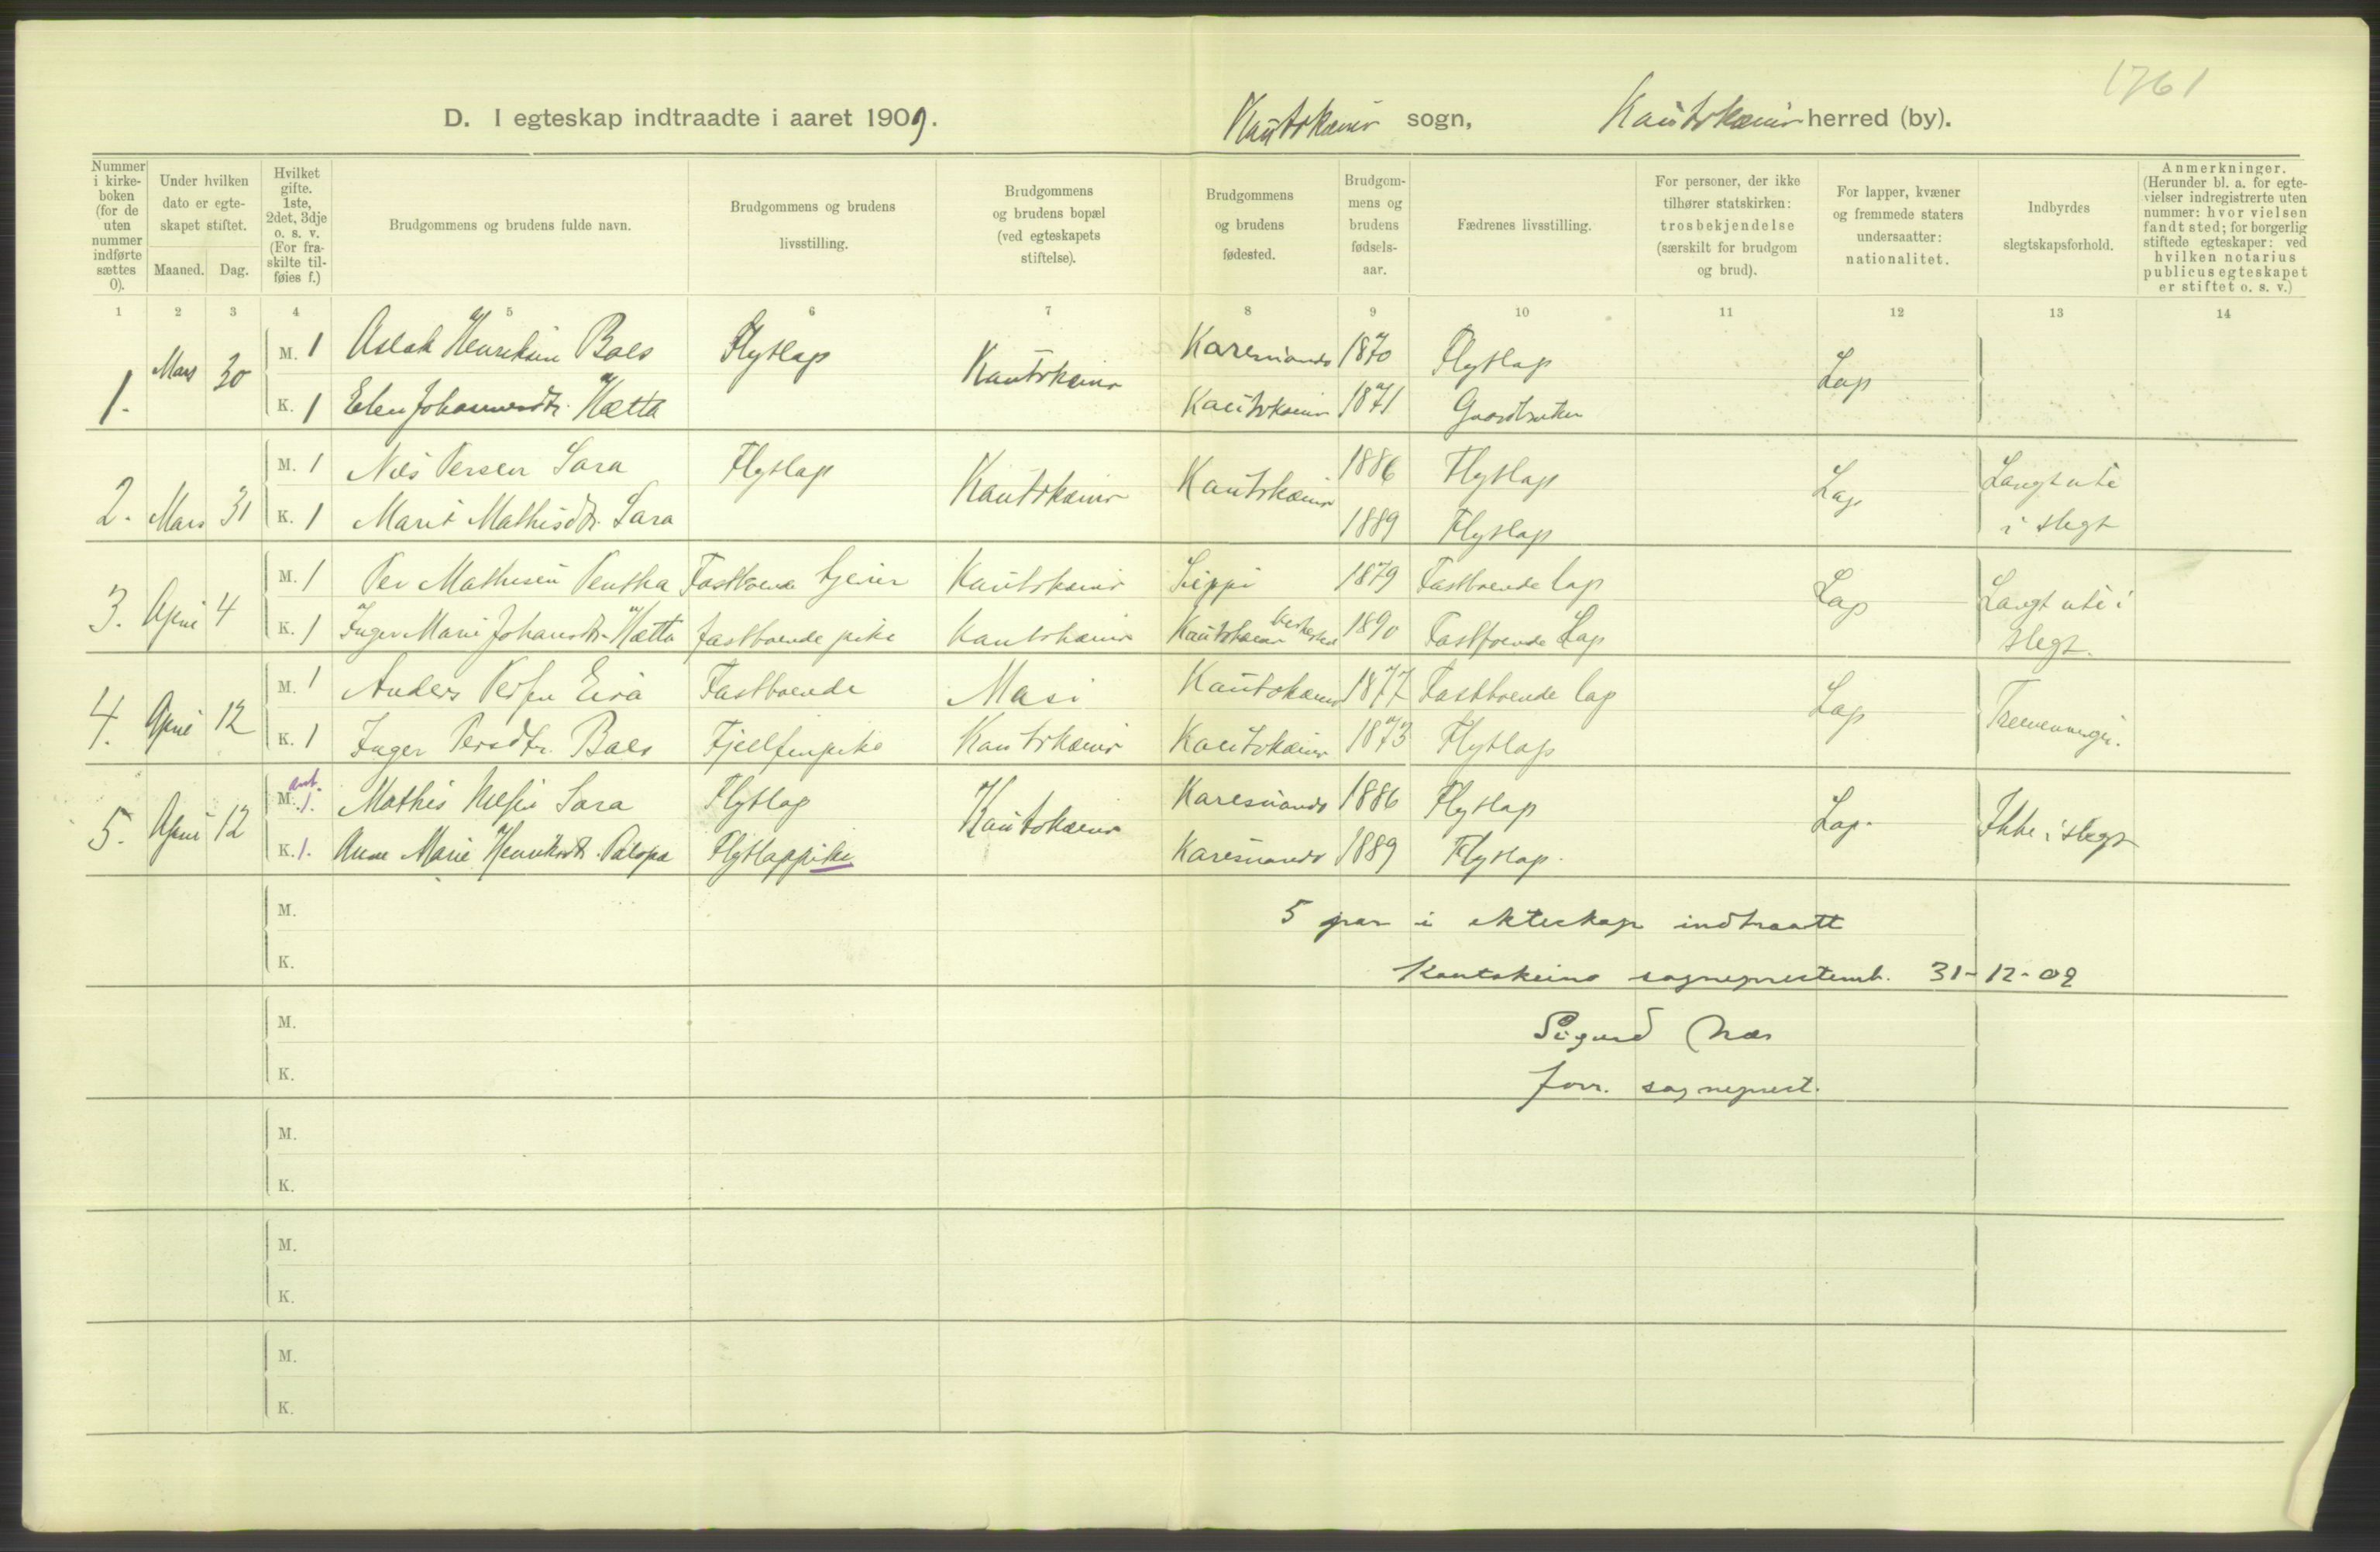 1761
D. I egteskap indtraadte i aaret 1909. Kautokeino sogn, Kautokeino herred (by).
Nummer i kirke-boken (for de uten nummer indførte sættes 0).
Under hvilken dato er egte-skapet stiftet.
Maaned. Dag.
Hvilket gifte. 1ste, 2det, 3dje o. s. v. (For fra-skilte til-føies f.)
Brudgommens og brudens fulde navn.
Brudgommens og brudens livsstilling.
Brudgommens og brudens bopæl (ved egteskapets stiftelse).
Brudgommens og brudens fødested.
Brudgom-mens og brudens fødsels-aar.
Fædrenes livsstilling.
For personer, der ikke tilhører statskirken: trosbekjendelse (særskilt for brudgom og brud).
For lapper, kvæner og fremmede staters undersaatter: nationalitet.
Indbyrdes slegtskapsforhold.
Anmerkninger. (Herunder bl. a. for egte-vielser indregistrerte uten nummer: hvor vielsen fandt sted; for borgerlig stiftede egteskaper: ved hvilken notarius publicus egteskapet er stiftet o. s. v.)
1 2 3 4 5 6 7 8 9 10 11 12 13 14
1. Mars 30 M. 1 Aslak Henriksen Baes Flytlap Kautokeino Karesuando 1870 Flytlap Lap
K. 1 Elen Johannesdtr. Hætta Kautokeino 1871 Gaardbruker
2. Mars 31 M. 1 Nils Persen Sara Flytlap Kautokeino Kautokeino 1886 Flytlap Lap Langt ute
K. 1 Marit Mathisdtr. Sara 1889 Flytlap i slegt
3. April 4 M. 1 Per Mathisen Pentha Fastboende tjener Kautokeino Lippi 1879 Fastboende lap Lap Langt ute i
K. 1 Inger Marie Johansdtr. Hætta fastboende pike Kautokeino Kautokeino kirkested 1890 Fastboende Lap slegt.
4. April 12 M. 1 Anders Persen Eira Fastboende Masi Kautokeino 1877 Fastboende lap Lap Tremenninger.
K. 1 Inger Persdtr. Baes Fjellfinpike Kautokeino Kautokeino 1873 Flytlap
5. April 12 M. ant. 1. Mathis Nilsen Sara Flytlap Kautokeino Karesuando 1886 Flytlap Lap. Ikke i slegt
K. 1. Anne Marie Henriksdtr. Palopæ Flytlappike Karesuando 1889 Flytlap.
M. 5 par i ekteskap indtraatt
K. Kautokeino sogneprestemb. 31-12-09
M. Sigurd Næs
K. forr. sogneprest.
M.
K.
M.
K.
M.
K.